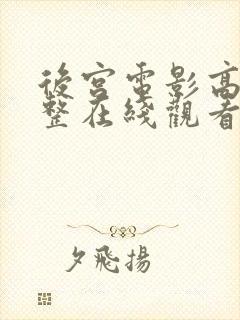 後宮電影高
整在綫觀看
夕飛揚